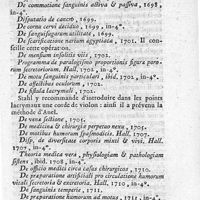 De commotione sanguinis activâ & passivâ, 1698,
in-4°.
Disputatio de canco, 1699.
De cornu cervi deciduo, 1699, in-4°.
De sanguisugarum utilitate, 1699.
De scarificatione narium ægyptiaca, 1701. Il con-
seille cette opération.
De mensium insolitis viis, 1702.
Programma de paralogismo proportionis figuræ par-
tium secretoriarum. Hall, 1702, in-4°.
De motu sanguinis particulari, ibid, 1702, in-4°.
De affectibus oculorum, 1702.
De fistulâ lacrymali, 1702.
Stahl y recommande d'introduire dans les points
lacrymaux une corde de violon: ainsi il a prévenu la
méthode d'Anel.
De venæ sectione, 1701.
De medicinâ & chirurgiâ perpetuo nexu, 1705.
De motibus humorum spasmodicis, Hall, 1707.
Diss. de diversitate corporis mixti & vivi, Hall,
1707, in-4°.
Theoria medica vera, physiologiam & pathologiam
sistens, ibid, 1708, in-4°.
De officio medici circa casus chirurgicos, 1710.
De separatione artificiali pro circulatione humorum
vitali secretoriâ & excretoriâ, Hall, 1710, in-4°.
De sanguinis temperie, 1711.
De præparatione humorum ad motus, 1711, in-4°.